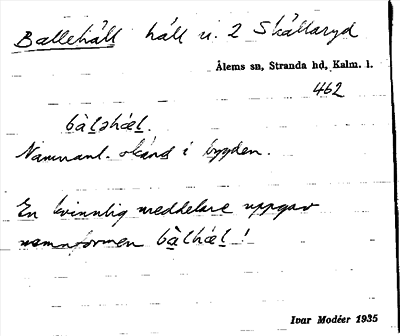 Ballehäll häll u. 2 Skällaryd
Ålems sn, Stranda hd, Kalm. l.
462
bàḷəhæḷ.
Namnanl. okänd i bygden.
En kvinnlig meddelare uppgav
namnformen bàḷhæḷ!
Ivar Modéer 1935